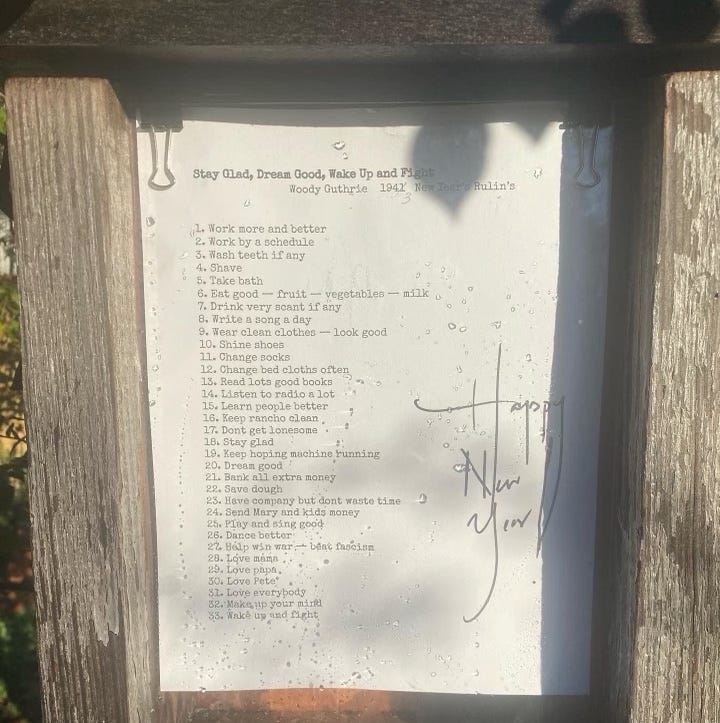 Stay Glad, Dream Good, Wake Up and Fight
Woody Guthrie 1941 New Year's Rulin's
3
1. Work more and better
2. Work by a schedule
3. Wash teeth if any
4. Shave
5. Take bath
6. Eat good — fruit — vegetables — milk
7. Drink very scant if any
8. Write a song a day
9. Wear clean clothes — look good
10. Shine shoes
11. Change socks
12. Change bed cloths often
13. Read lots good books
14. Listen to radio a lot
15. Learn people better
16. Keep rancho clean
17. Dont get lonesome
18. Stay glad
19. Keep hoping machine running
20. Dream good
21. Bank all extra money
22. Save dough
23. Have company but dont waste time
24. Send Mary and kids money
25. Play and sing good
26. Dance better
27. Help win war — beat fascism
28. Love mama
29. Love papa
30. Love Pete
31. Love everybody
32. Make up your mind
33. Wake up and fight
Happy
New
Year